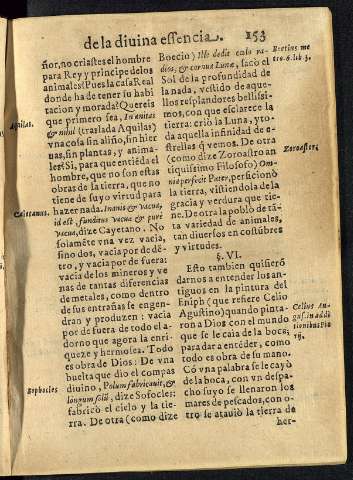 de la diuina essencia. 153
ñor, no criastes el hombre
para Rey y principe de los
animales? Pues la casa Real
donde ha de tener su habi
tacion y morada? Quereis
que primero sea, Inanitas
Aquilas.
& nihil (traslada Aquilas)
vna cosa sin aliño, sin hier
nas, sin plantas, y anima-
les? Si, para que entiẽda el
hombre, que no son estas
obras de la tierra, que no
tiene de suyo virtud para
Caietanus.
hazer nada. Inanis & vacua,
id est, funditus vacua & purè
vacua, dize Cayetano. No
solamẽte vna vez vacia,
sino dos, vacia por de dẽ-
tro, y vacia por de fuera:
vacia de los mineros y ve
nas de tantas diferencias
de metales, como dentro
de sus entrañas se engen-
dran y produzen: vacia
por de fuera de todo el a-
dorno que agora la enri-
queze y hermosea. Todo
es obra de Dios: De vna
buelta que dio el compas
Sophocles
diuino, Polum fabricauit, &
longum solũ, dize Sofocles:
fabricò el cielo y la tie-
rra. De otra (como dize
Boecio) Ille dedit
Boetius me
tro. 6. lib 3.
dios, & cornua Lunæ, sacò el
Sol de la profundidad de
la nada, vestido de aque-
llos resplandores bellissi-
mos, con que esclarece la
tierra: criò la Luna, y to-
da aquella infinidad de e-
strellas q̃ vemos. De otra
(como dize Zoroastro an
Zoroastro,
tiquissimo Filosofo) Om-
nia perfecit Pater, perficionò
la tierra, vistiendola de la
gracia y verdura que tie-
ne. De otra la poblò de tã-
ta variedad de animales,
tan diuersos en costũbres
y virtudes.
§. VI.
Esto tambien quisierõ
darnos a entender los an-
tiguos en la pintura del
Eniph (que refiere Celio
Celius Au
gus. in addi
tionibus Pie
rij.
Agustino) quando pinta-
ron a Dios con el mundo
que se le caia de la boca;
para dar a entẽder, como
todo es obra de su mano.
Cõ vna palabra se le cayò
de la boca, con vn despa-
cho suyo se llenaron los
mares de pescados, con o-
tro se atauiò la tierra de
her-